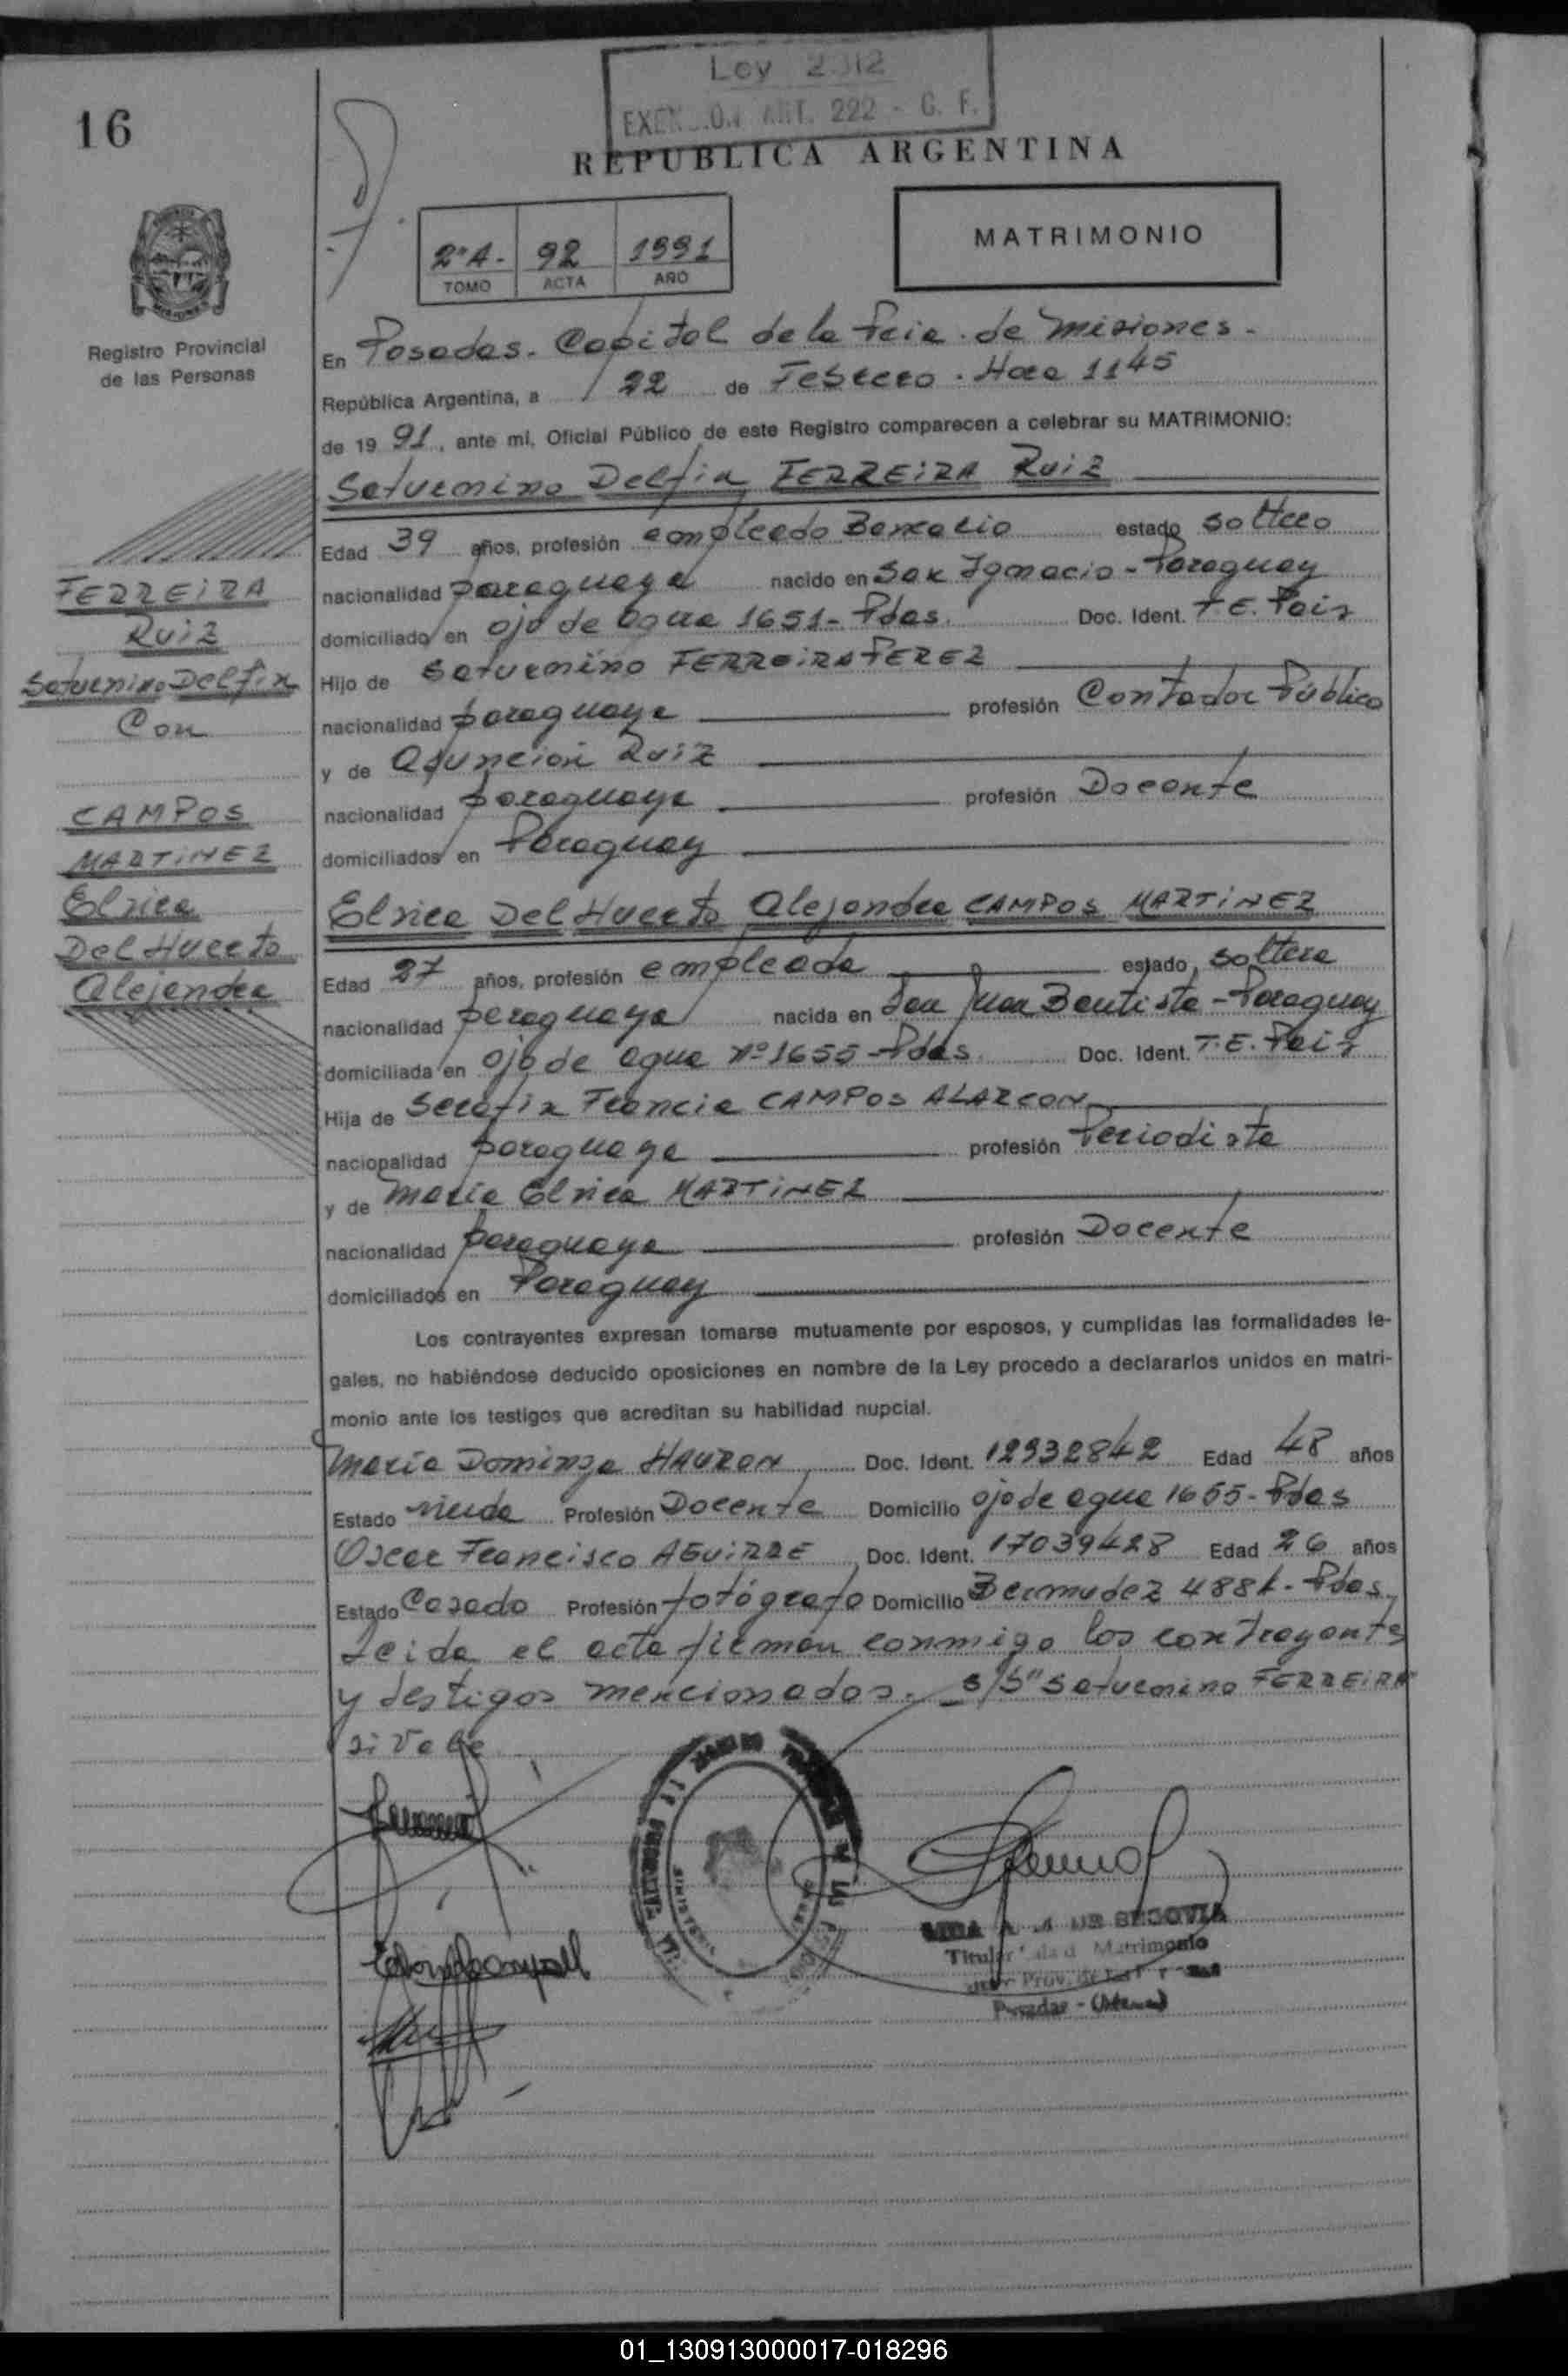 Ley 2.312
EXENCION ART. 222 - C. F.
16
REPUBLICA ARGENTINA
2ºA- 92 1991
TOMO ACTA AÑO
MATRIMONIO
Registro Provincial
de las Personas
En Posadas. Capital de la Pcia. de Misiones.
República Argentina, a 22 de Febrero. Hora 1145
de 19 91, ante mí, Oficial Público de este Registro comparecen a celebrar su MATRIMONIO:
Saturnino Delfin FERREIRA RuiZ
Edad 39 años, profesión empleado Bancario estado soltero
nacionalidad paraguaya nacido en San Ignacio - Paraguay
domiciliado en ojo de agua 1651- Pdas. Doc. Ident. T.E. País
Hijo de Saturnino FERREIRA PEREZ
nacionalidad paraguaya profesión Contador Público
y de Asunción RuiZ
nacionalidad paraguaya profesión Docente
domiciliados en Paraguay
FERREIRA
RuiZ
Saturnino Delfin
Con
CAMPOS
MARTINEZ
Elvira
Del Huerto
Alejandra
Elvira Del Huerto Alejandra CAMPOS MARTINEZ
Edad 27 años, profesión empleada estado soltera
nacionalidad paraguaya nacida en San Juan Bautista - Paraguay
domiciliada en ojo de agua Nº 1655 - Pdas. Doc. Ident. T.E. País
Hija de Serafin Francia CAMPOS ALARCON
nacionalidad paraguaya profesión Periodista
y de Maria Elvira MARTINEZ
nacionalidad paraguaya profesión Docente
domiciliados en Paraguay
Los contrayentes expresan tomarse mutuamente por esposos, y cumplidas las formalidades le-
gales, no habiéndose deducido oposiciones en nombre de la Ley procedo a declararlos unidos en matri-
monio ante los testigos que acreditan su habilidad nupcial.
María Dominga HAURON Doc. Ident. 12932842 Edad 48 años
Estado viuda Profesión Docente Domicilio ojo de agua 1655- Pdas
Oscar Francisco AGUIRRE Doc. Ident. 17039428 Edad 26 años
Estado Casado Profesión fotógrafo Domicilio Bermudez 4881- Pdas.
Leida el acta firman conmigo los contrayentes
y testigos mencionados. s/S" Saturnino FERREIRA"
si Vale
DE SEGOVIA
Titular Matrimonio
Prov. de las
Posadas - (Misiones)
01_130913000017-018296